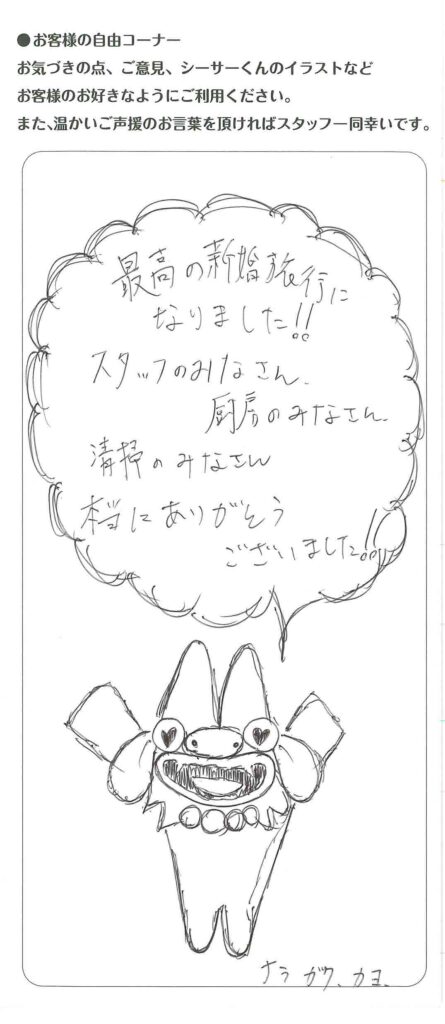 ●お客様の自由コーナー
お気づきの点、ご意見、シーサーくんのイラストなど
お客様のお好きなようにご利用ください。
また、温かいご声援のお言葉を頂ければスタッフ一同幸いです。
最高の新婚旅行に
なりました!!
スタッフのみなさん、
厨房のみなさん、
清掃のみなさん
本当にありがとう
ございました!!
ナラ ガク、カヨ、